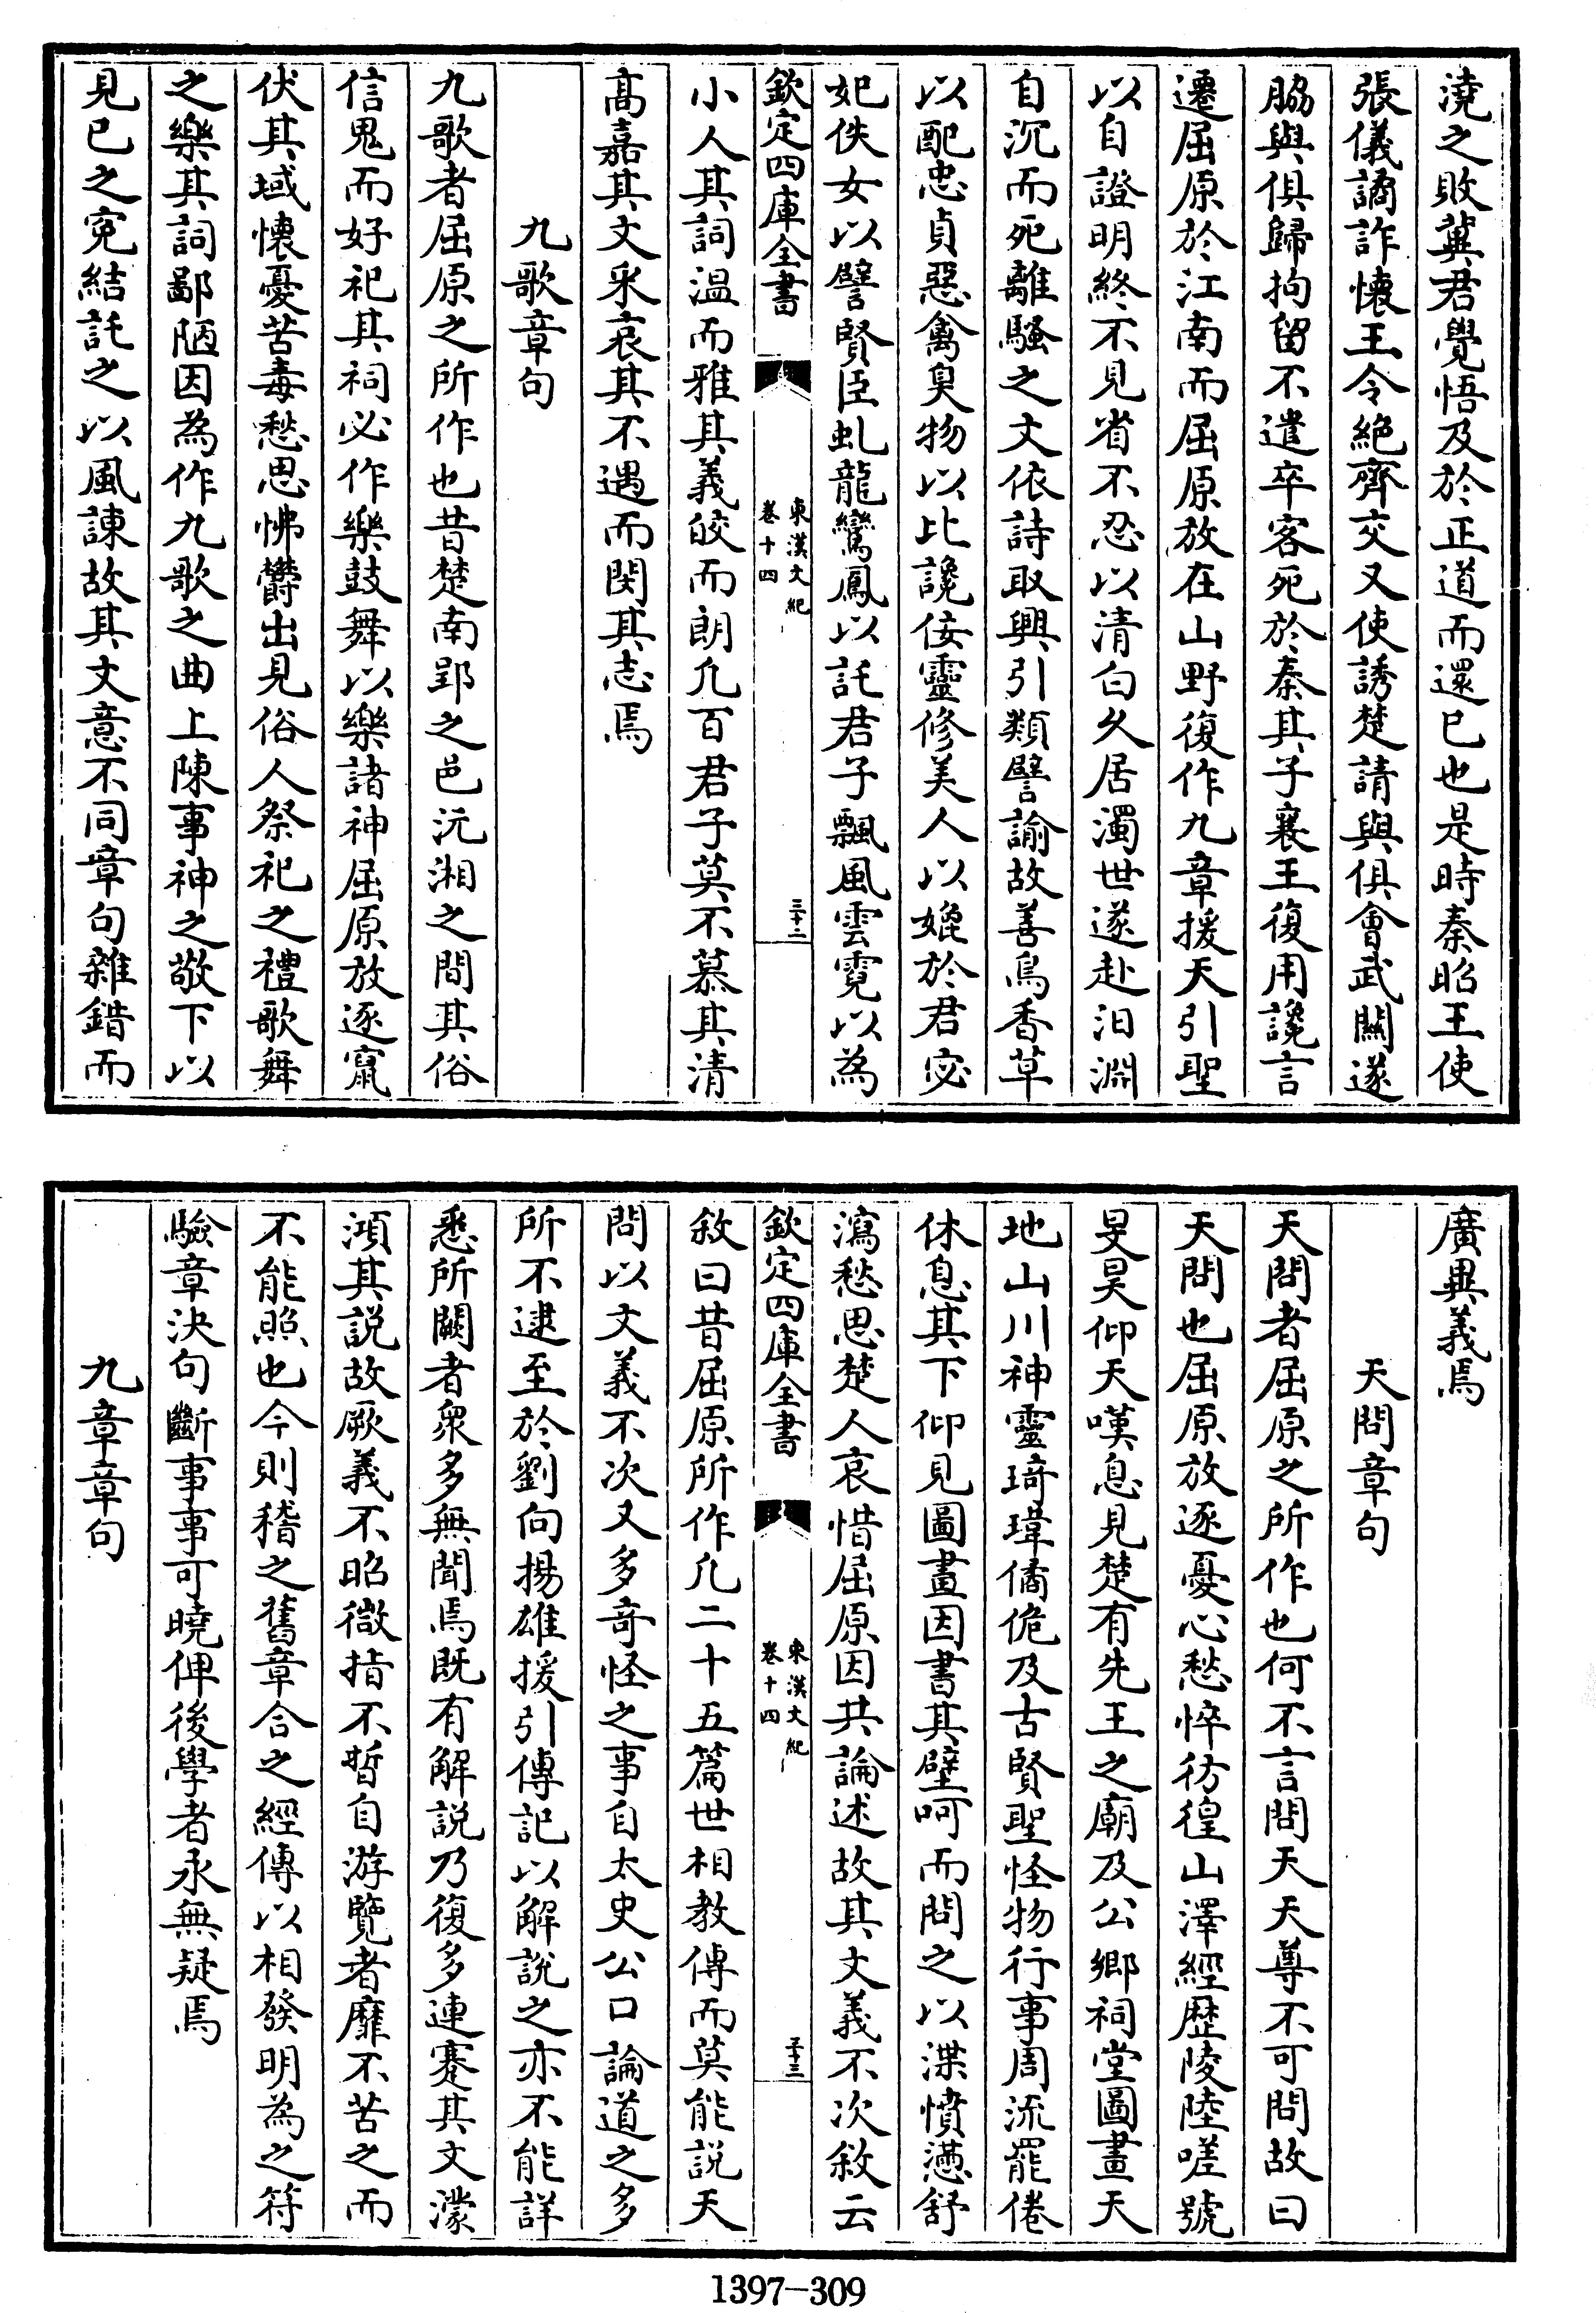 澆之敗冀君覺悟及於正道而還已也是時秦昭王使
張儀譎詐懷王令絶齊交又使誘楚請與俱會武關遂
脇與俱歸拘留不遣卒客死於秦其子襄王復用讒言
遷屈原於江南而屈原放在山野復作九章援天引聖
以自證明終不見省不忍以清白久居濁世遂赴汨淵
自沉而死離騷之文依詩取興引類譬諭故善鳥香草
以配忠貞惡禽臭物以比讒佞靈修美人以媲於君宓
妃佚女以譬賢臣虬龍鸞鳳以託君子飄風雲霓以為
欽定四庫全書
東漢文紀
卷十四
三十二
小人其詞温而雅其義皎而朗凡百君子莫不慕其清
髙嘉其文采哀其不遇而閔其志焉
九歌章句
九歌者屈原之所作也昔楚南郢之邑沅湘之間其俗
信鬼而好祀其祠必作樂鼓舞以樂諸神屈原放逐竄
伏其域懷憂苦毒愁思怫欝出見俗人祭祀之禮歌舞
之樂其詞鄙陋因為作九歌之曲上陳事神之敬下以
見已之寃結託之以風諫故其文意不同章句雜錯而
廣異義焉
天問章句
天問者屈原之所作也何不言問天天尊不可問故曰
天問也屈原放逐憂心愁悴彷徨山澤經歴陵陸嗟號
旻昊仰天嘆息見楚有先王之廟及公卿祠堂圖畫天
地山川神靈琦瑋僪佹及古賢聖怪物行事周流罷倦
休息其下仰見圖畫因書其壁呵而問之以渫憤懣舒
瀉愁思楚人哀惜屈原因共論述故其文義不次敘云
欽定四庫全書
東漢文紀
卷十四
三十三
敘曰昔屈原所作凡二十五篇世相教傳而莫能説天
問以文義不次又多奇怪之事自太史公口論道之多
所不逮至於劉向揚雄援引傳記以解說之亦不能詳
悉所闕者衆多無聞焉既有解説乃復多連蹇其文濛
澒其説故厥義不昭微指不晢自游覽者靡不苦之而
不能照也今則稽之舊章合之經傳以相發明為之符
驗章決句斷事事可曉俾後學者永無疑焉
九章章句
1397-309